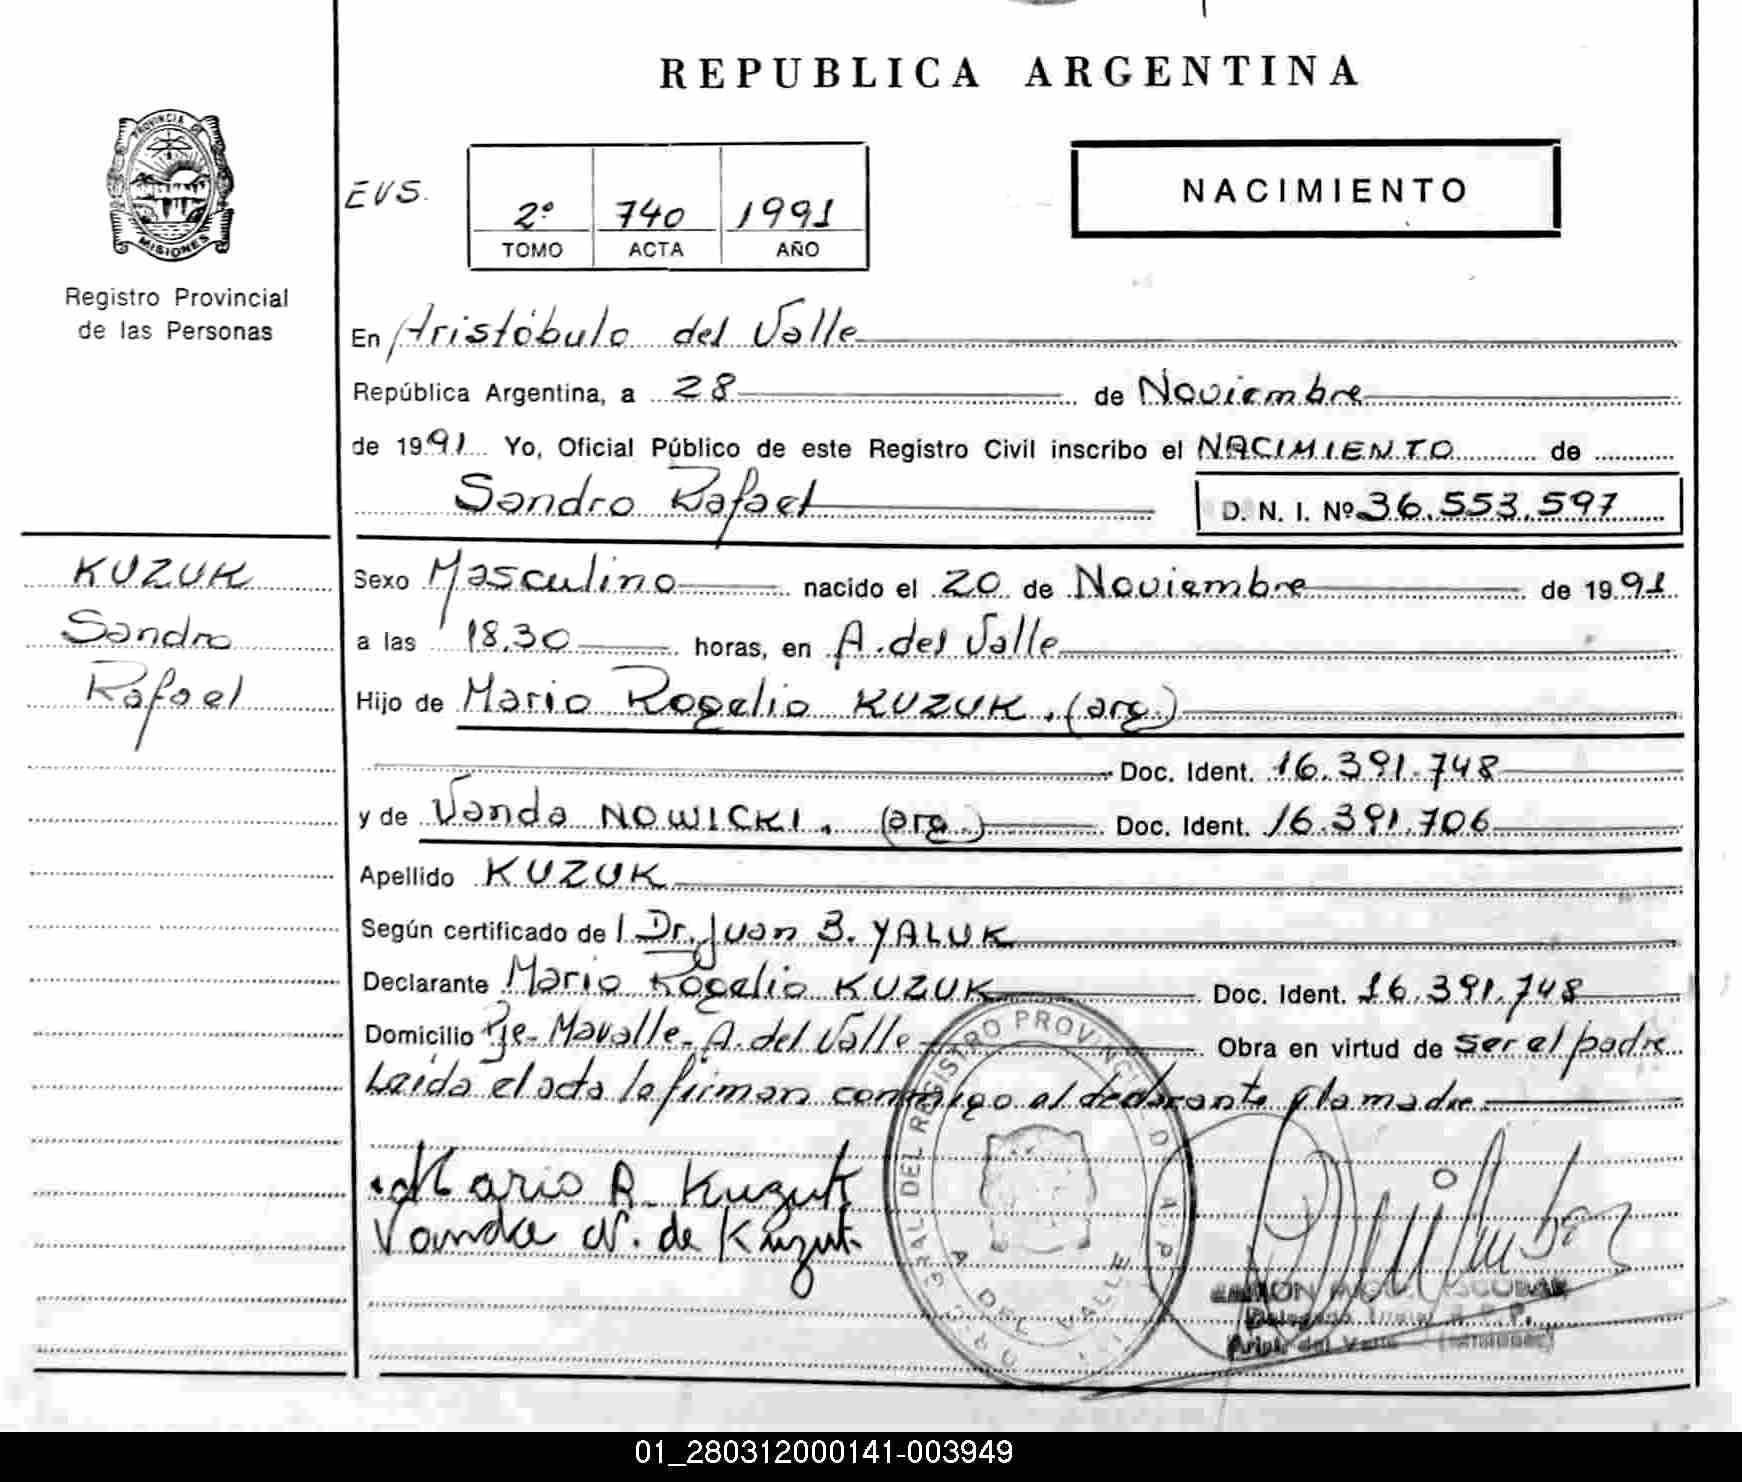 REPUBLICA ARGENTINA
PROVINCIA DE
MISIONES
Registro Provincial
de las Personas
EVS.
2º 740 1991
TOMO ACTA AÑO
NACIMIENTO
En Aristóbulo del Valle
República Argentina, a 28 de Noviembre
de 1991 Yo, Oficial Público de este Registro Civil inscribo el NACIMIENTO de
Sandro Rafael D. N. I. Nº 36.553.597
KUZUK
Sandro
Rafael
Sexo Masculino nacido el 20 de Noviembre de 1991
a las 18.30 horas, en A. del Valle
Hijo de Mario Rogelio KUZUK. (arg.)
Doc. Ident. 16.391.748
y de Vanda NOWICKI. (arg.) Doc. Ident. 16.391.706
Apellido KUZUK
Según certificado de l Dr. Juan B. YALUK
Declarante Mario Rogelio KUZUK Doc. Ident. 16.391.748
Domicilio Pje. Mavalle- A. del Valle Obra en virtud de ser el padre
Leída el acta la firman conmigo el declarante y la madre.
Mario R. Kuzuk
Vanda N. de Kuzuk
GRAL DEL REGISTRO PROVINCIAL DE LAS P
A. DEL VALLE
ESCOBAR
Delegado
Arist. del Valle (Misiones)
01_280312000141-003949